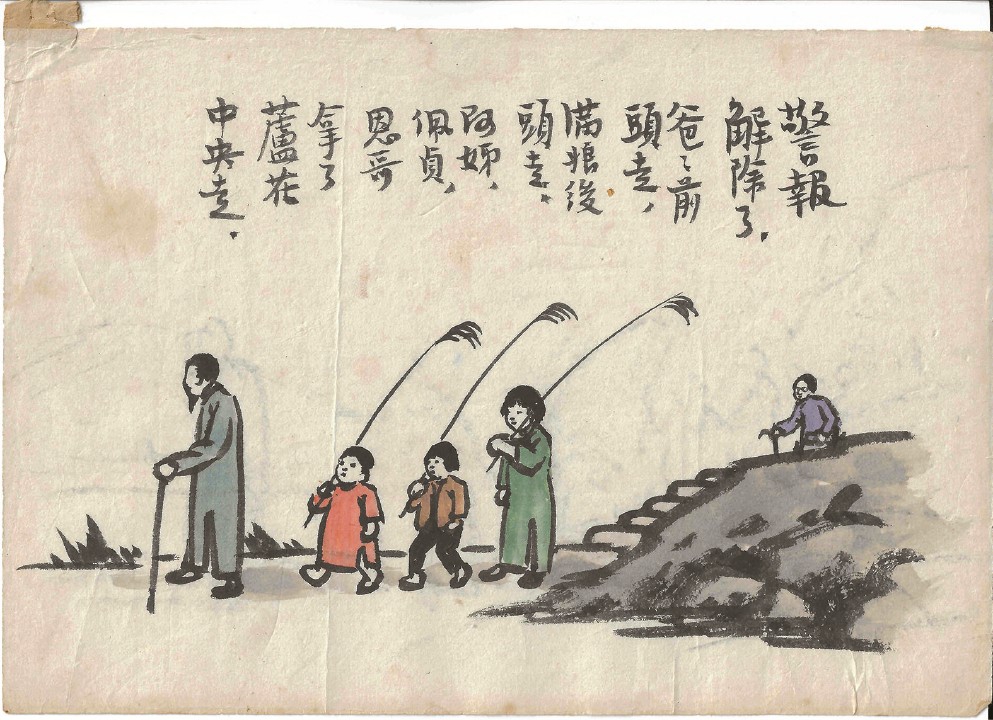 警報
解除了.
爸〻前
頭走，
滿娘後
頭走.
阿姊、
佩貞、
恩哥
拿了
蘆花
中央走.